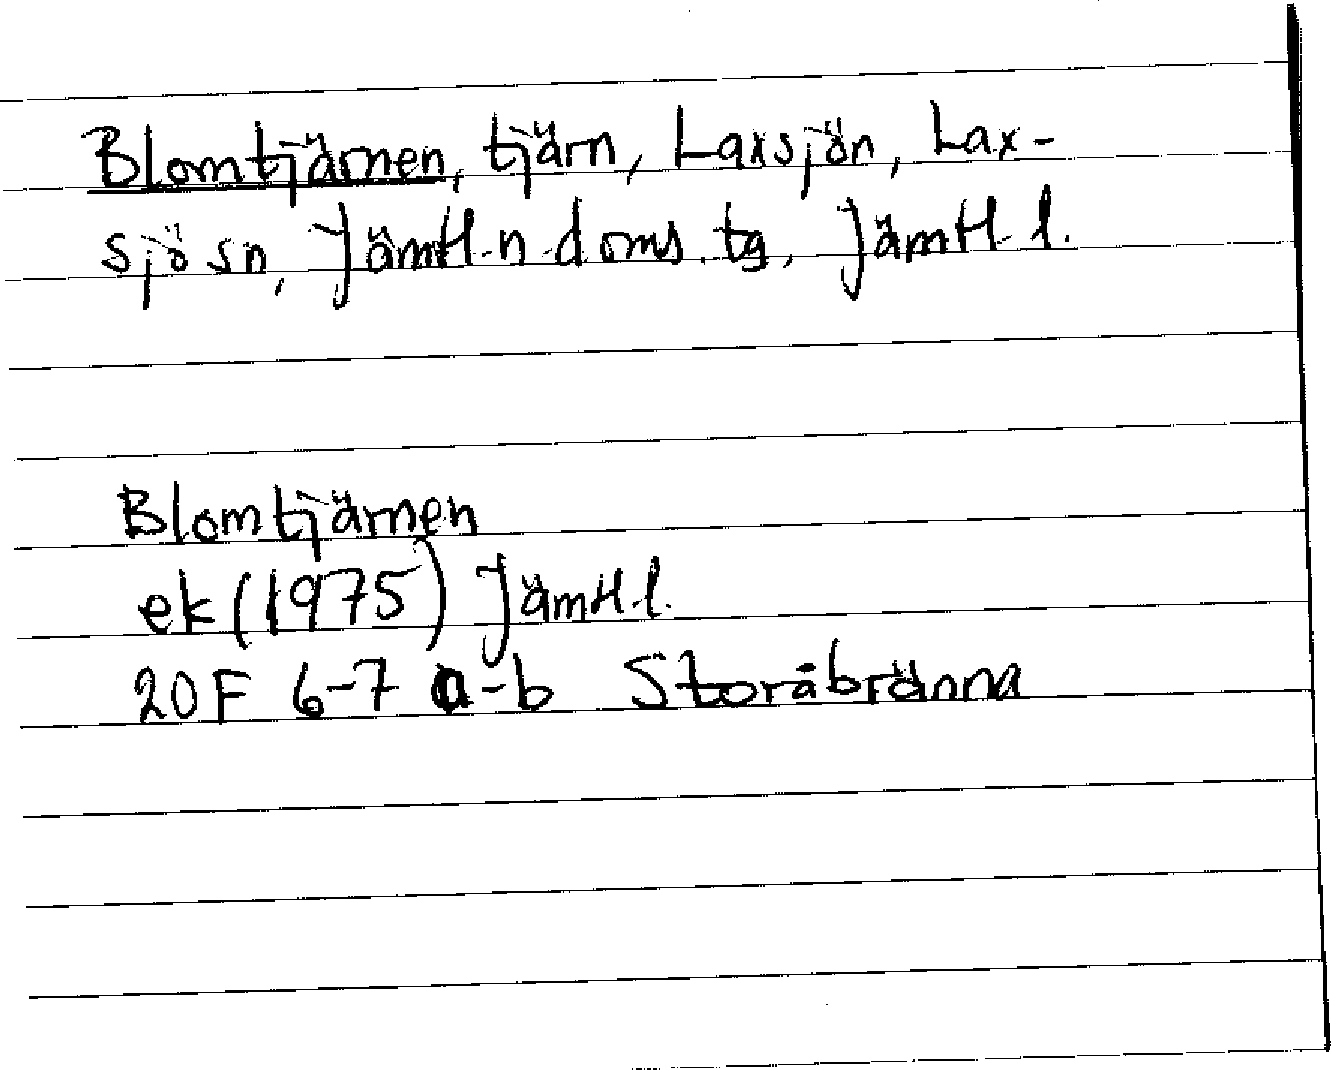 Blomtjärnen, tjärn, Laxsjön, Lax-
sjö sn, Jämtl. n. doms. tg, Jämtl. l.
Blomtjärnen
ek (1975) Jämtl. l.
20F 6-7 a-b Storåbränna